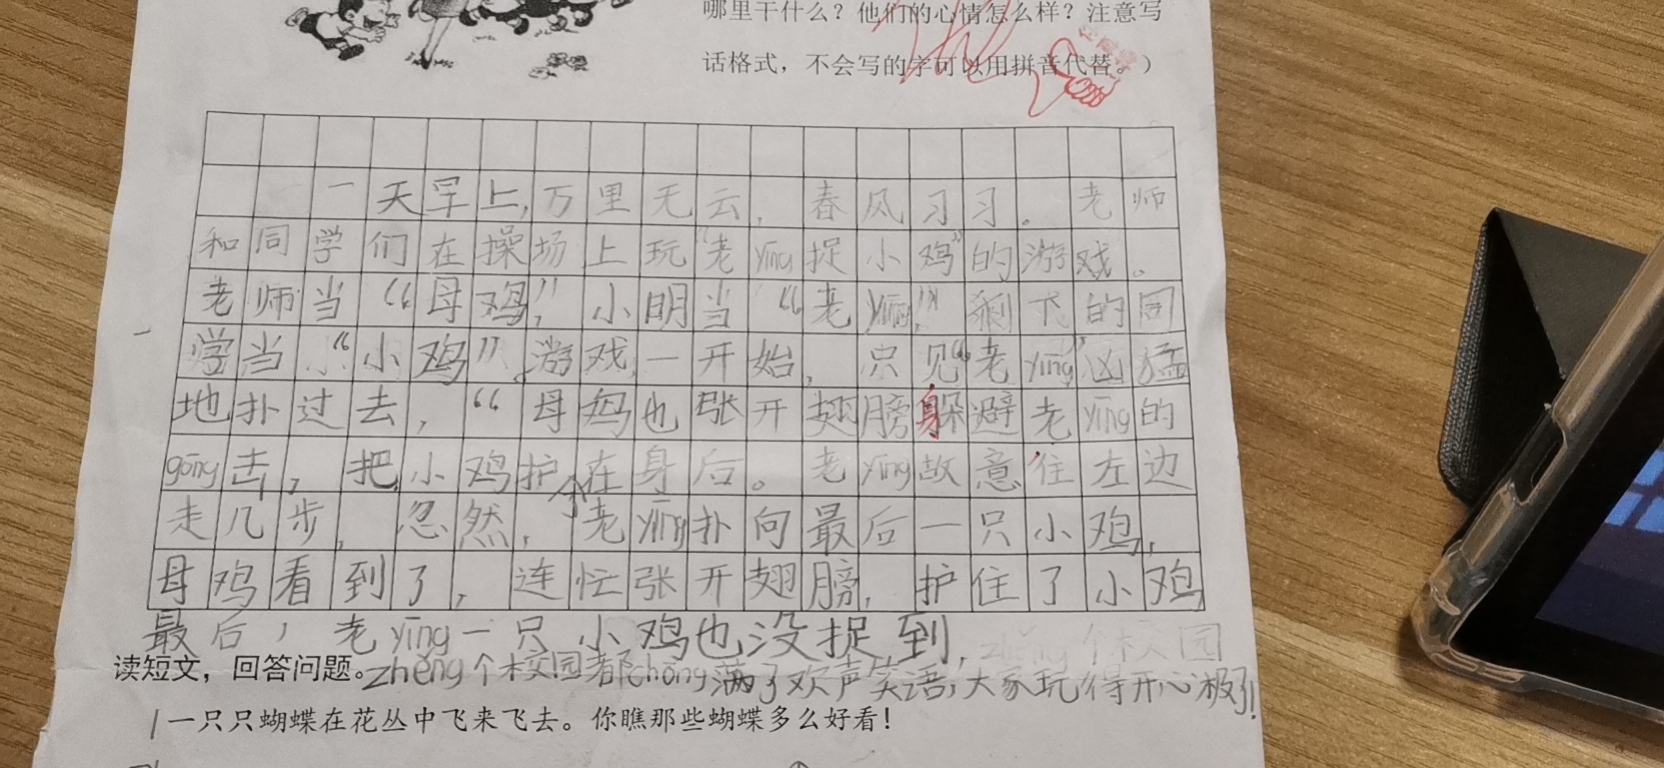 哪里干什么？他们的心情怎么样？注意写
话格式，不会写的字可以用拼音代替。）
一天早上，万里无云，春风习习。老师
和同学们在操场上玩“老yīng捉小鸡”的游戏。
老师当“母鸡”，小明当“老yīng”，剩下的同
学当“小鸡”。游戏一开始，只见“老yīng”凶猛
地扑过去，“母鸡也张开翅膀躲避老yīng的
gōng击，把小鸡护在身后。老yīng故意往左边
走几步，忽然，老yīng扑向最后一只小鸡，
母鸡看到了，连忙张开翅膀，护住了小鸡
最后，老yīng一只小鸡也没捉到，
读短文，回答问题。zhěng个校园都chōng满了欢声笑语，大家玩得开心极了！
一只只蝴蝶在花丛中飞来飞去。你瞧那些蝴蝶多么好看！